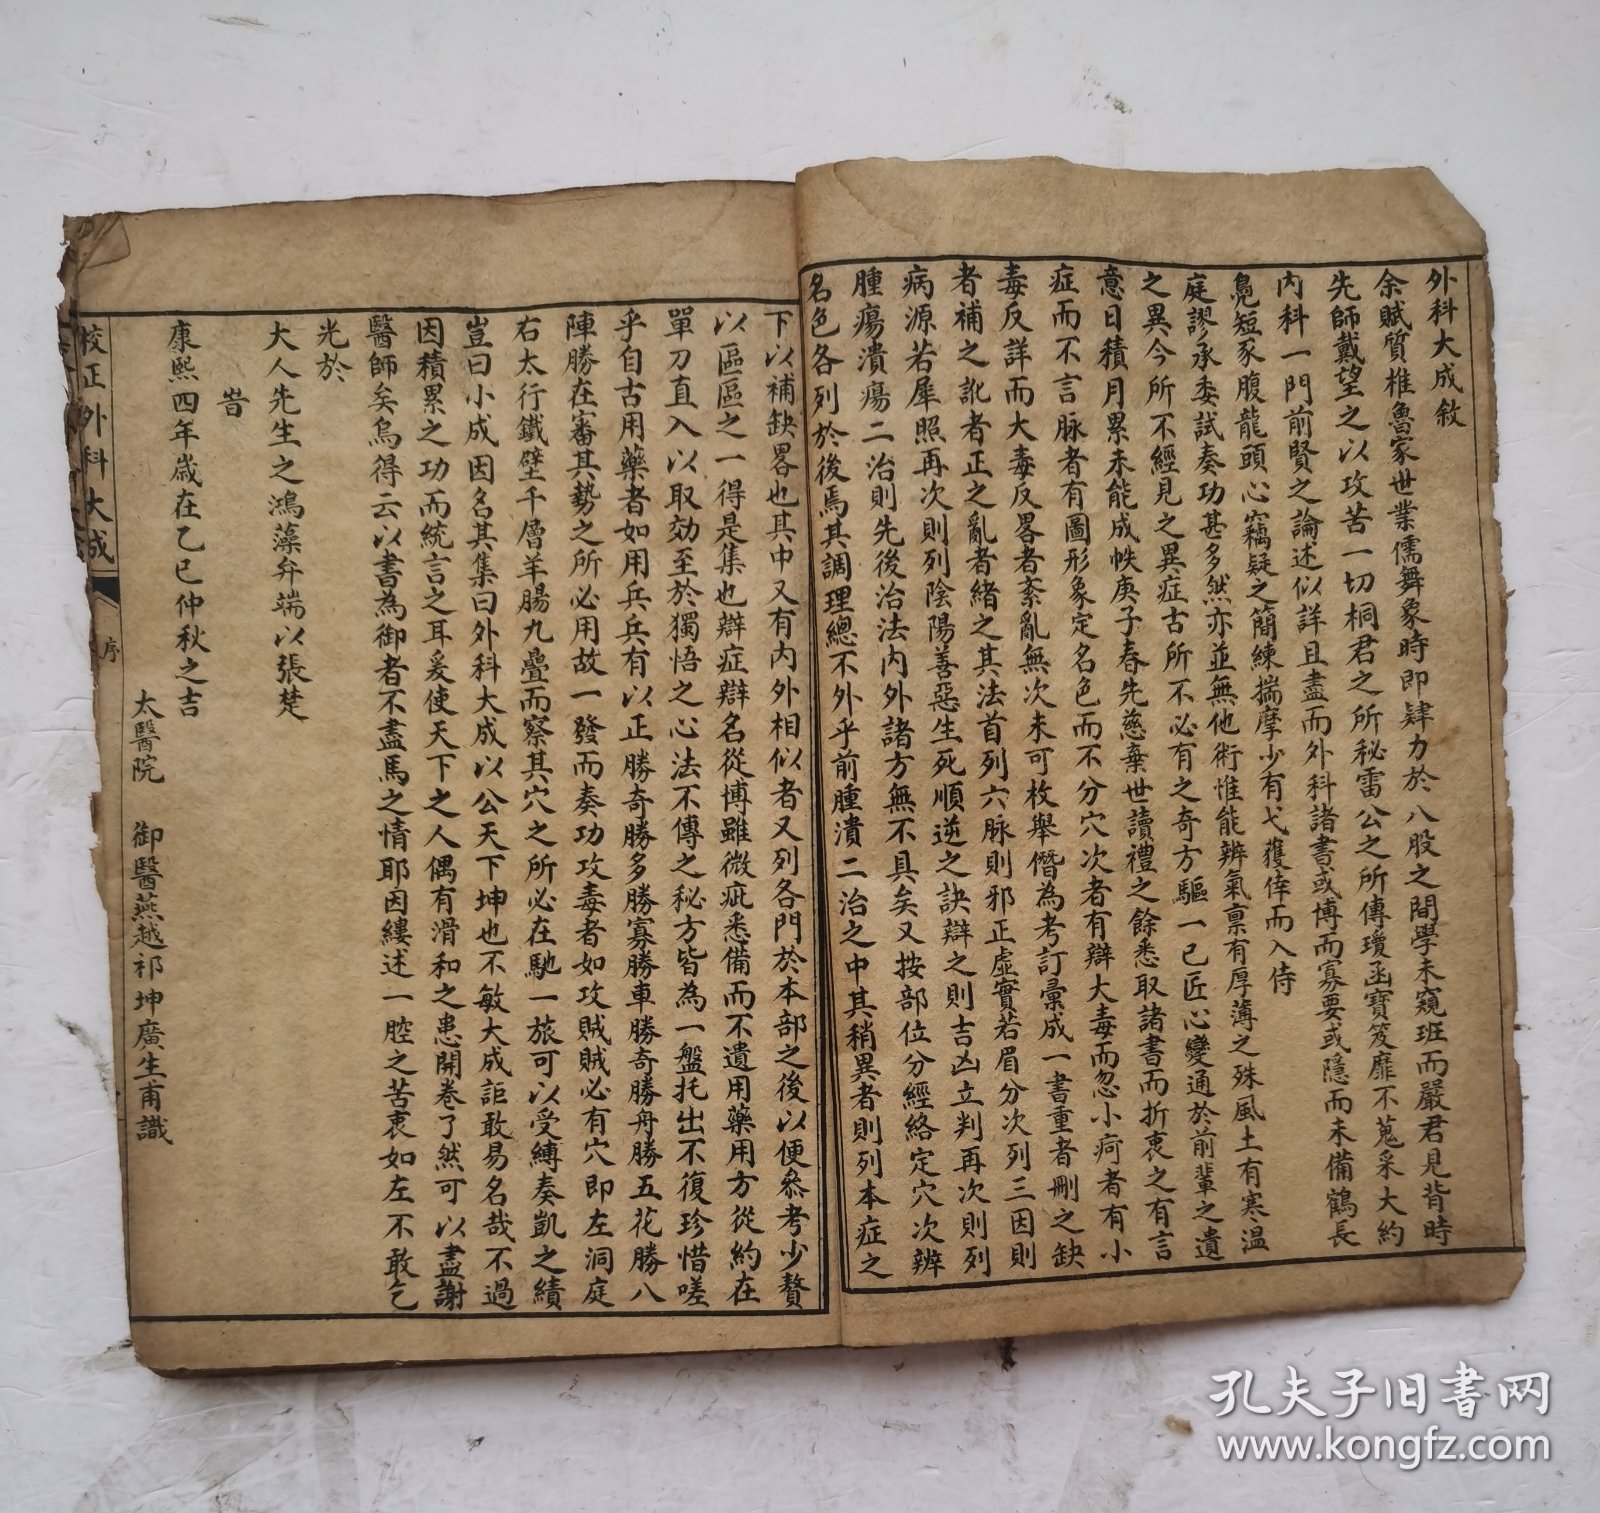 外科大成敘
余賦質椎魯家世業儒舞象時即肄力於八股之間學未窺班而嚴君見背時
先師戴望之以攻苦一切桐君之所秘雷公之所傳瓊函寶笈靡不蒐采大約
內科一門前賢之論述似詳且盡而外科諸書或博而寡要或隱而未備鶴長
鳧短豕腹龍頭心竊疑之簡練揣摩少有弋獲倖而入侍
庭謬承委試奏功甚多然亦並無他術惟能辨氣禀有厚薄之殊風土有寒溫
之異今所不經見之異症古所不必有之奇方驅一己匠心變通於前輩之遺
意日積月累未能成帙庚子春先慈棄世讀禮之餘悉取諸書而折衷之有言
症而不言脉者有圖形象定名色而不分穴次者有辯大毒而忽小疴者有小
毒反詳而大毒反畧者紊亂無次未可枚舉僭為考訂彙成一書重者刪之缺
者補之訛者正之亂者緒之其法首列六脉則邪正虛實若眉分次列三因則
病源若犀照再次則列陰陽善惡生死順逆之訣辯之則吉凶立判再次則列
腫瘍潰瘍二治則先後治法內外諸方無不具矣又按部位分經絡定穴次辨
名色各列於後焉其調理總不外乎前腫潰二治之中其稍異者則列本症之
下以補缺畧也其中又有內外相似者又列各門於本部之後以便叅考少贅
以區區之一得是集也辯症辯名從博雖微疵悉備而不遺用藥用方從約在
單刀直入以取効至於獨悟之心法不傳之秘方皆為一盤托出不復珍惜嗟
乎自古用藥者如用兵兵有以正勝奇勝多勝寡勝車勝奇勝舟勝五花勝八
陣勝在審其勢之所必用故一發而奏功攻毒者如攻賊賊必有穴即左洞庭
右太行鐵壁千層羊腸九疊而察其穴之所必在馳一旅可以受縛奏凱之績
豈曰小成因名其集曰外科大成以公天下坤也不敏大成詎敢易名哉不過
因積累之功而統言之耳爰使天下之人偶有滑和之患開卷了然可以盡謝
醫師矣烏得云以書為御者不盡馬之情耶因縷述一腔之苦衷如左不敢乞
光於
大人先生之鴻藻弁端以張楚
旹
康熙四年歲在乙巳仲秋之吉
太醫院 御醫燕越祁坤廣生甫識
校正外科大成
序
孔夫子旧书网
www.kongfz.com